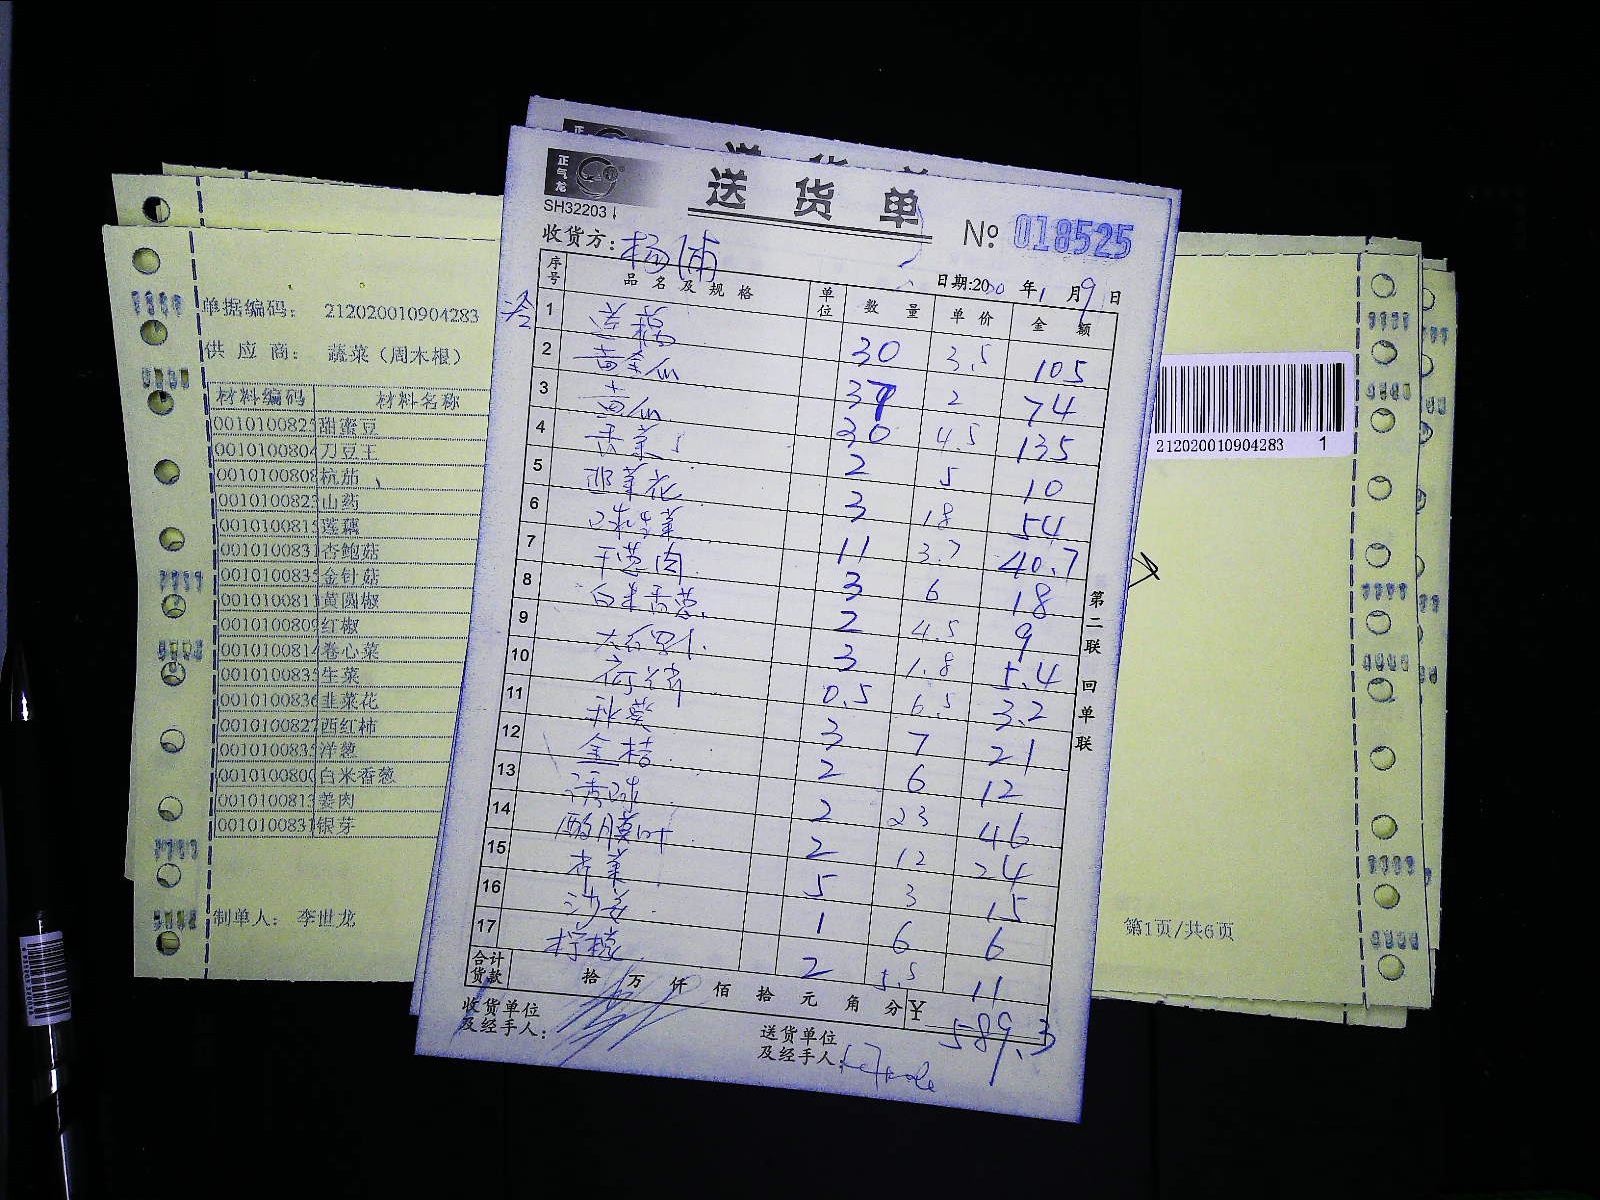 正气龙
SH32203
送货单
№ 018525
收货方: 杨浦
日期:2020年1月9日
序号 品名及规格 单位 数量 单价 金额
1 莲藕 30 3.5 105
2 黄金瓜 37 2 74
3 黄瓜 30 4.5 135
4 香菜 2 5 10
5 韭菜花 3 18 54
6 11 3.7 40.7
7 干葱肉 3 6 18
8 白米香葱 2 4.5 9
9 3 1.8 5.4
10 0.5 6.5 3.2
11 秋葵 3 7 21
12 金桔 2 6 12
13 2 23 46
14 2 12 24
15 5 3 15
16 沙姜 1 6 6
17 柠檬 2 5.5 11
合计货款 拾 万 仟 佰 拾 元 角 分 ¥ 589.3
收货单位及经手人:
送货单位及经手人:
第二联 回单联
单据编码: 212020010904283
供应商: 蔬菜（周木根）
材料编码 材料名称
001010082 甜蜜豆
0010100804 刀豆王
001010080 杭茄
001010082 山药
001010081 莲藕
0010100831 杏鲍菇
001010083 金针菇
0010100811 黄圆椒
0010100809 红椒
0010100814 卷心菜
001010083 生菜
0010100836 韭菜花
0010100827 西红柿
001010083 洋葱
0010100800 白米香葱
0010100813 姜肉
0010100831 银芽
制单人: 李世龙
212020010904283 1
第1页/共6页